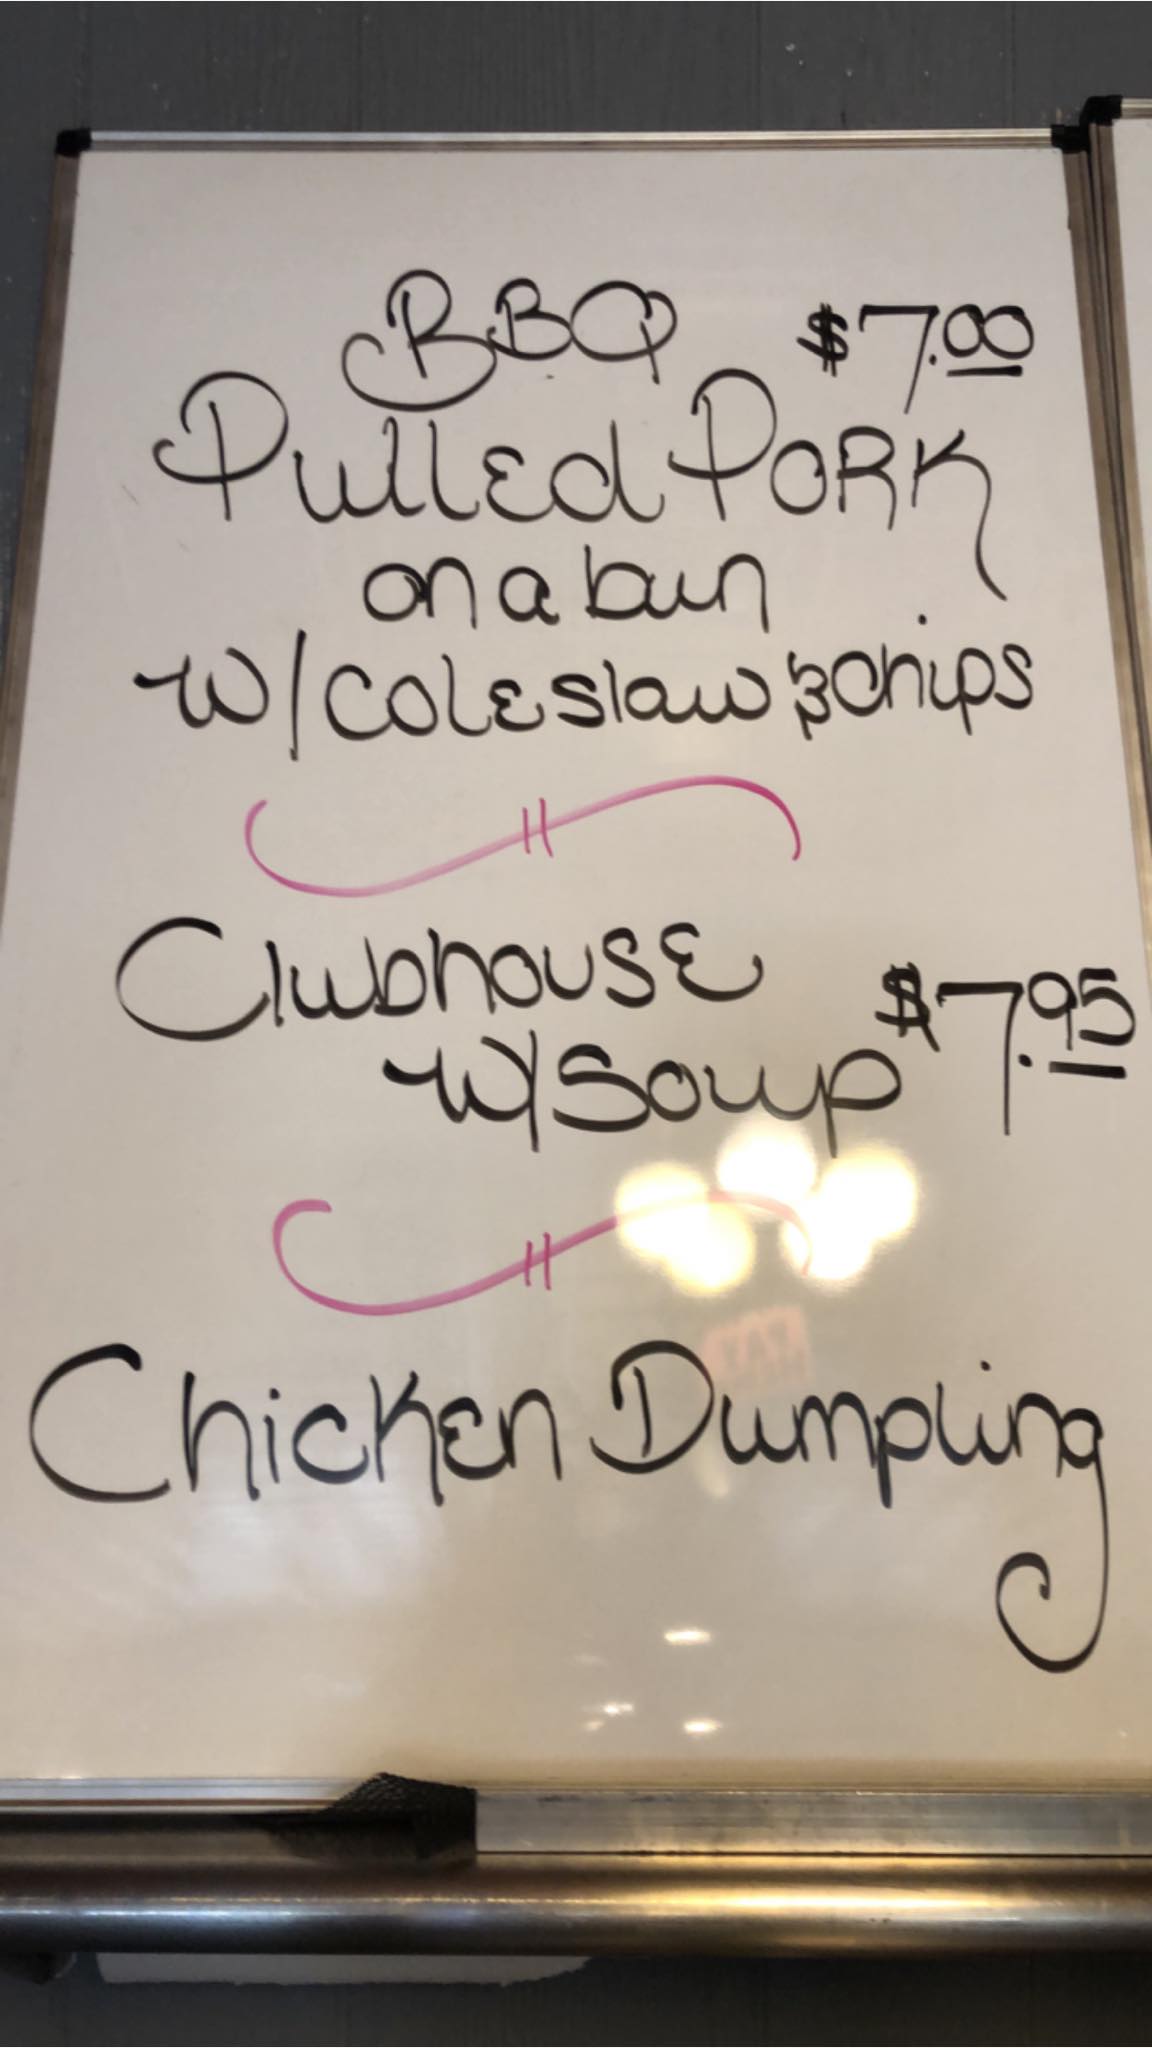 BBQ $7.00
Pulled Pork
on a bun
w/coleslaw & chips
Clubhouse
w/Soup $7.95
Chicken Dumpling